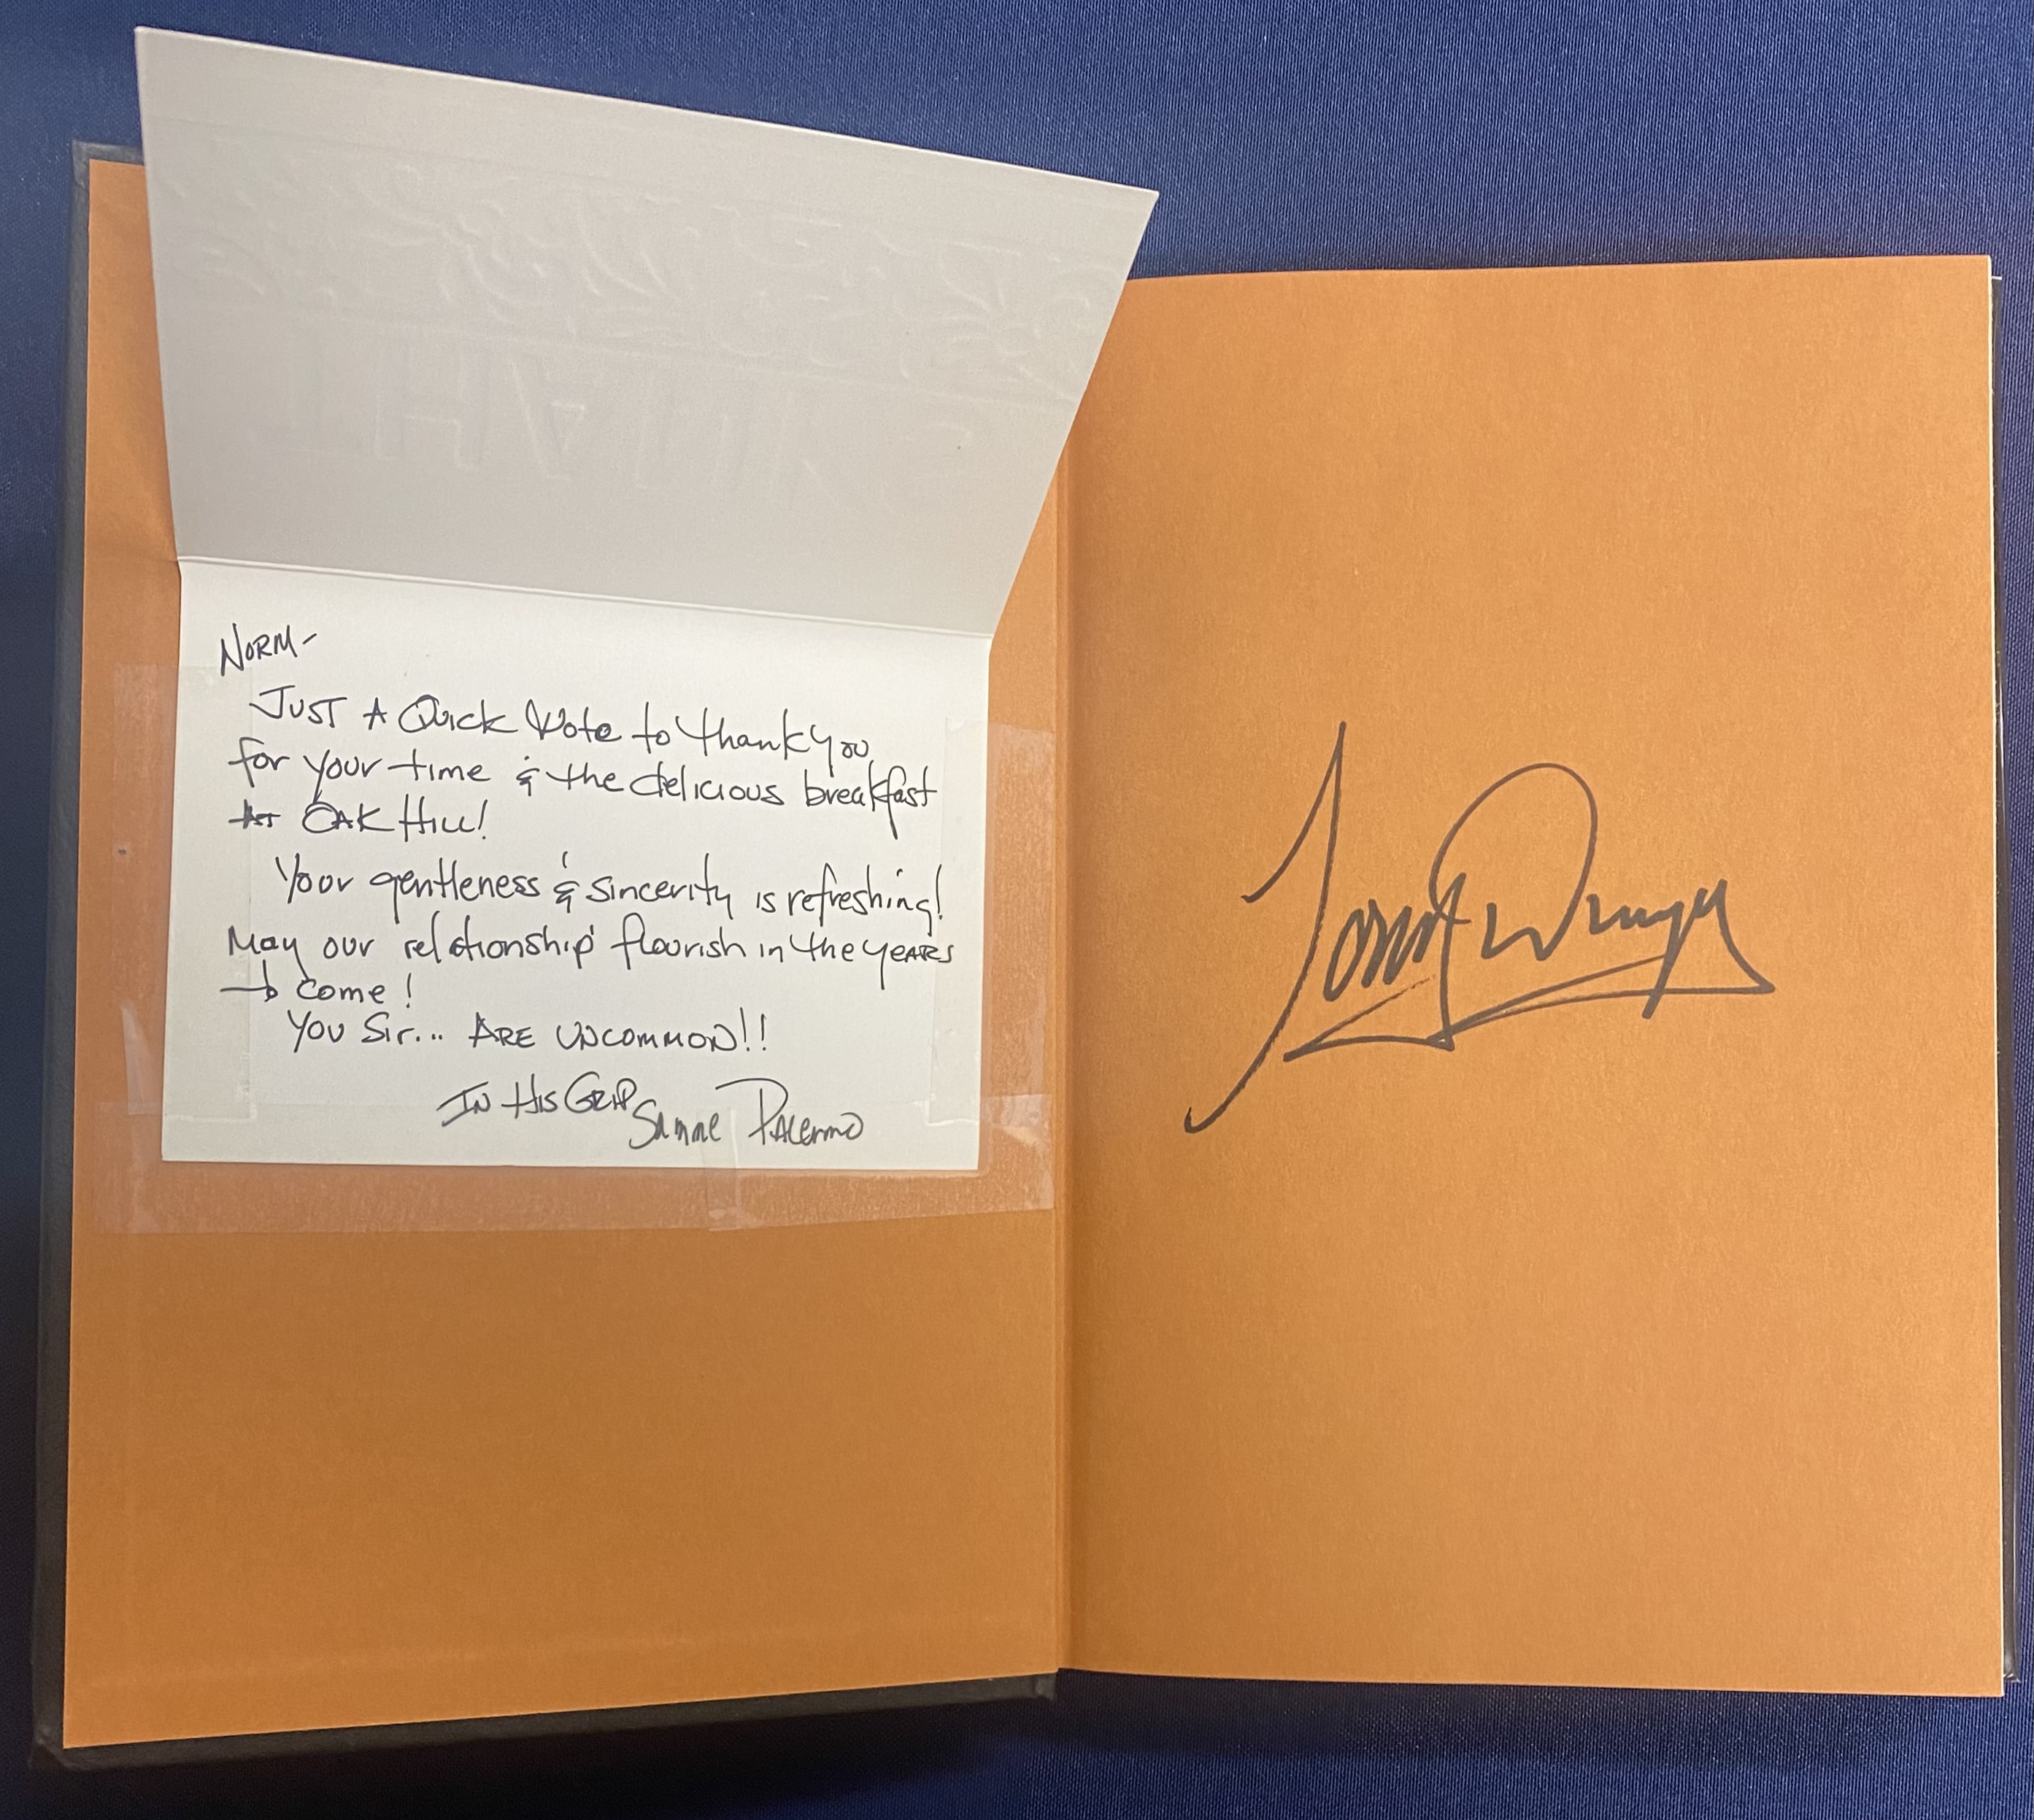 NORM-
JUST A Quick Note to thank you
for your time & the delicious breakfast
At OAK HILL!
Your gentleness & sincerity is refreshing!
May our relationship flourish in the years
to come!
You Sir... ARE UNCOMMON!!
IN HIS GRIP
Palermo
Tony Dungy